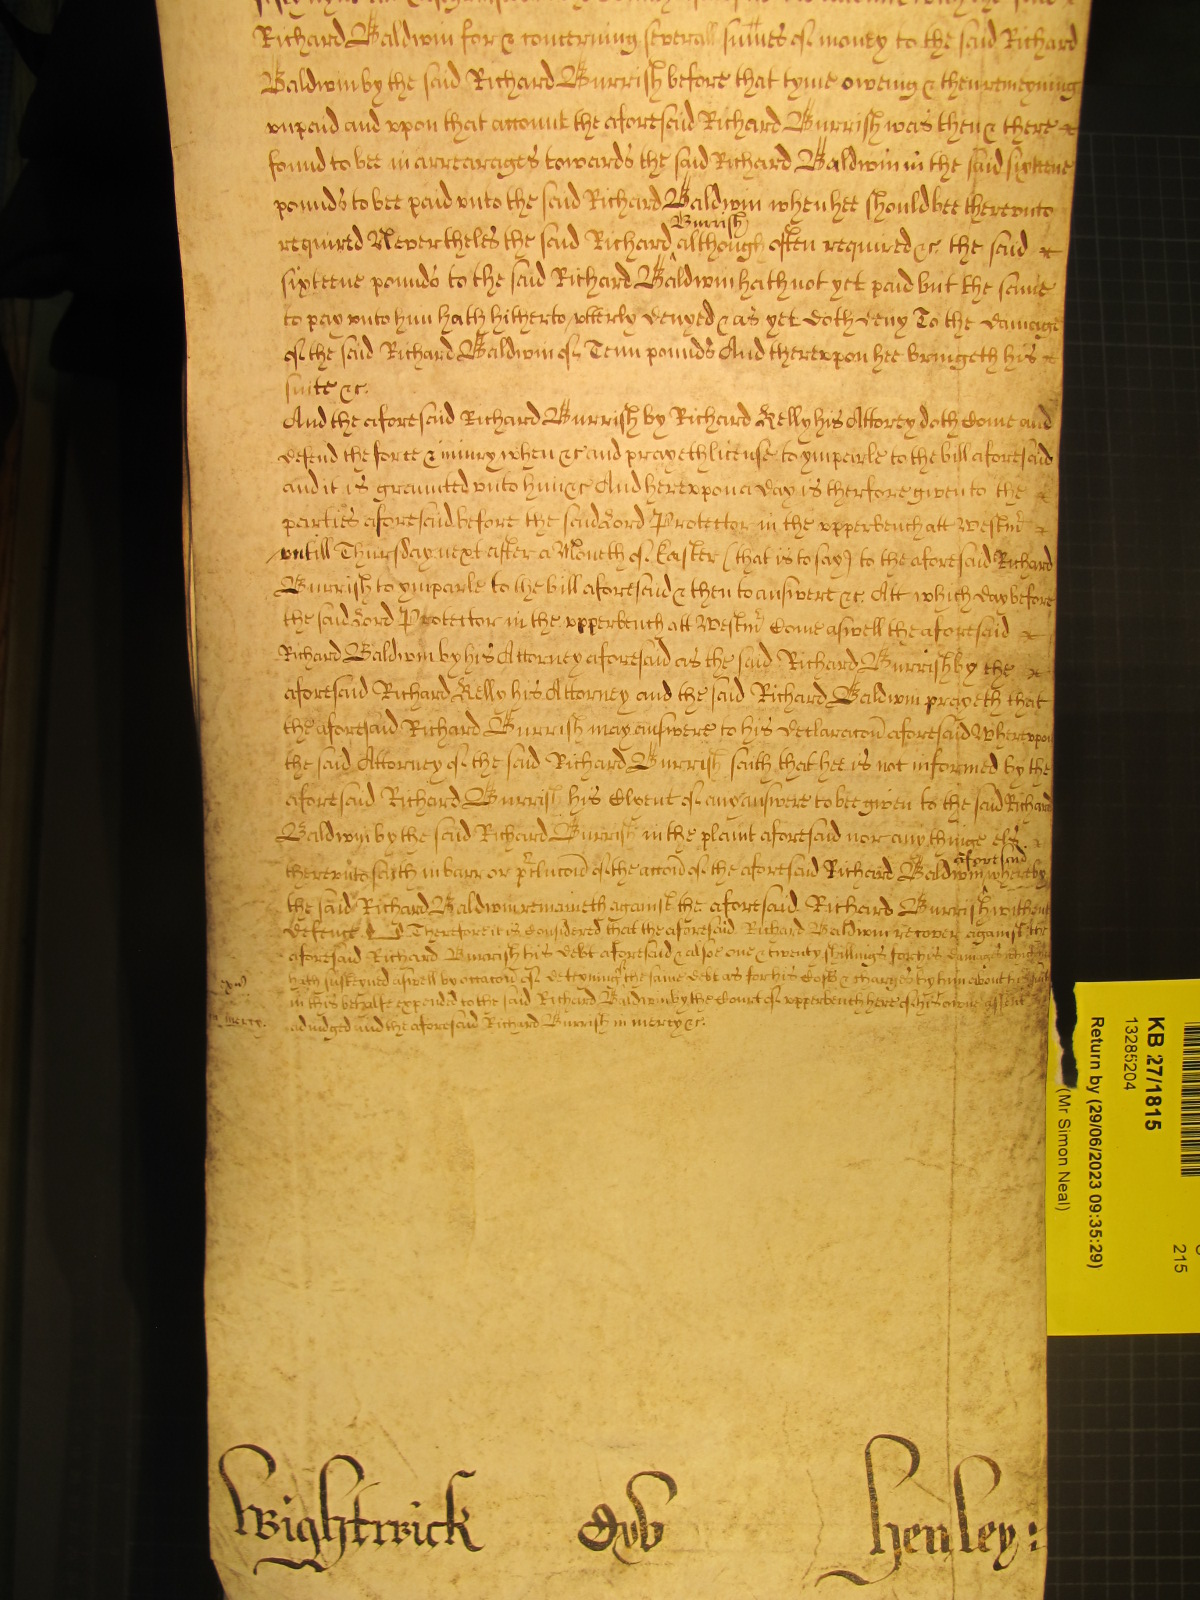 Richard Baldwin for & concerning severall sumes of money to the said Richard
Baldwin by the said Richard Burrish before that tyme oweing & then remeyning
vnpaid and vpon that accounte the aforesaid Richard Burrish was then & there
found to bee in arrearages towards the said Richard Baldwin in the said sixteene
pounds to bee paid vnto the said Richard Baldwin when hee should bee therevnto
Burrish
required Neverthelesse the said Richard although often required &c. the said
sixteene pounds to the said Richard Baldwin hath not yet paid but the same
to pay vnto him hath hitherto vtterly denyed & as yet doth deny To the damage
of the said Richard Baldwin of Tenn pounds And therevpon hee bringeth his
suite &c.
And the aforesaid Richard Burrish by Richard Kelly his Attorey doth Come and
defend the force & iniury when &c and prayeth license to ymparle to the bill aforesaid
and it is graunted vnto him &c And herevpon a day is therfore given to the
parties aforesaid before the said Lord Protector in the vpperbench att Westmr
vntill Thursday next after a Moneth of Easter (that is to say) to the aforesaid Richard
Burrish to ymparle to the bill aforesaid & then to answere &c. Att which day before
the said Lord Protector in the vpperbench att Westmr Come aswell the aforesaid
Richard Baldwin by his Attorney aforesaid as the said Richard Burrish by the
aforesaid Richard Kelly his Attorney and the said Richard Baldwin prayeth that
the aforesaid Richard Burrish may answere to his declaracon aforesaid Wherevpon
the said Attorney of the said Richard Burrish saith that hee is not informed by the
aforesaid Richard Burrish his Clyent of any answere to bee given to the said Richard
Baldwin by the said Richard Burrish in the plaint aforesaid nor any thinge els
aforesaid
therevnto saith in barr or preclucon of the accon of the aforesaid Richard Baldwin whereby
the said Richard Baldwin remaineth against the aforesaid Richard Burrish without
defence Therefore it is Considered that the aforesaid Richard Baldwin recover against the
aforesaid Richard Burrish his debt aforesaid & alsoe one & twenty shillings for his damages which hee
hath susteyned aswell by occacon of deteyning the same debt as for his Costs & charges by him about his suite
in this behalfe expended to the said Richard Baldwin by the Court of vpperbench here of his owne assent
adiudged and the aforesaid Richard Burrish in mercy &c.
mercy.
Wightwick Oyb Henley:
KB 27/1815
13285204
Return by (29/06/2023 09:35:29)
(Mr Simon Neal)
215